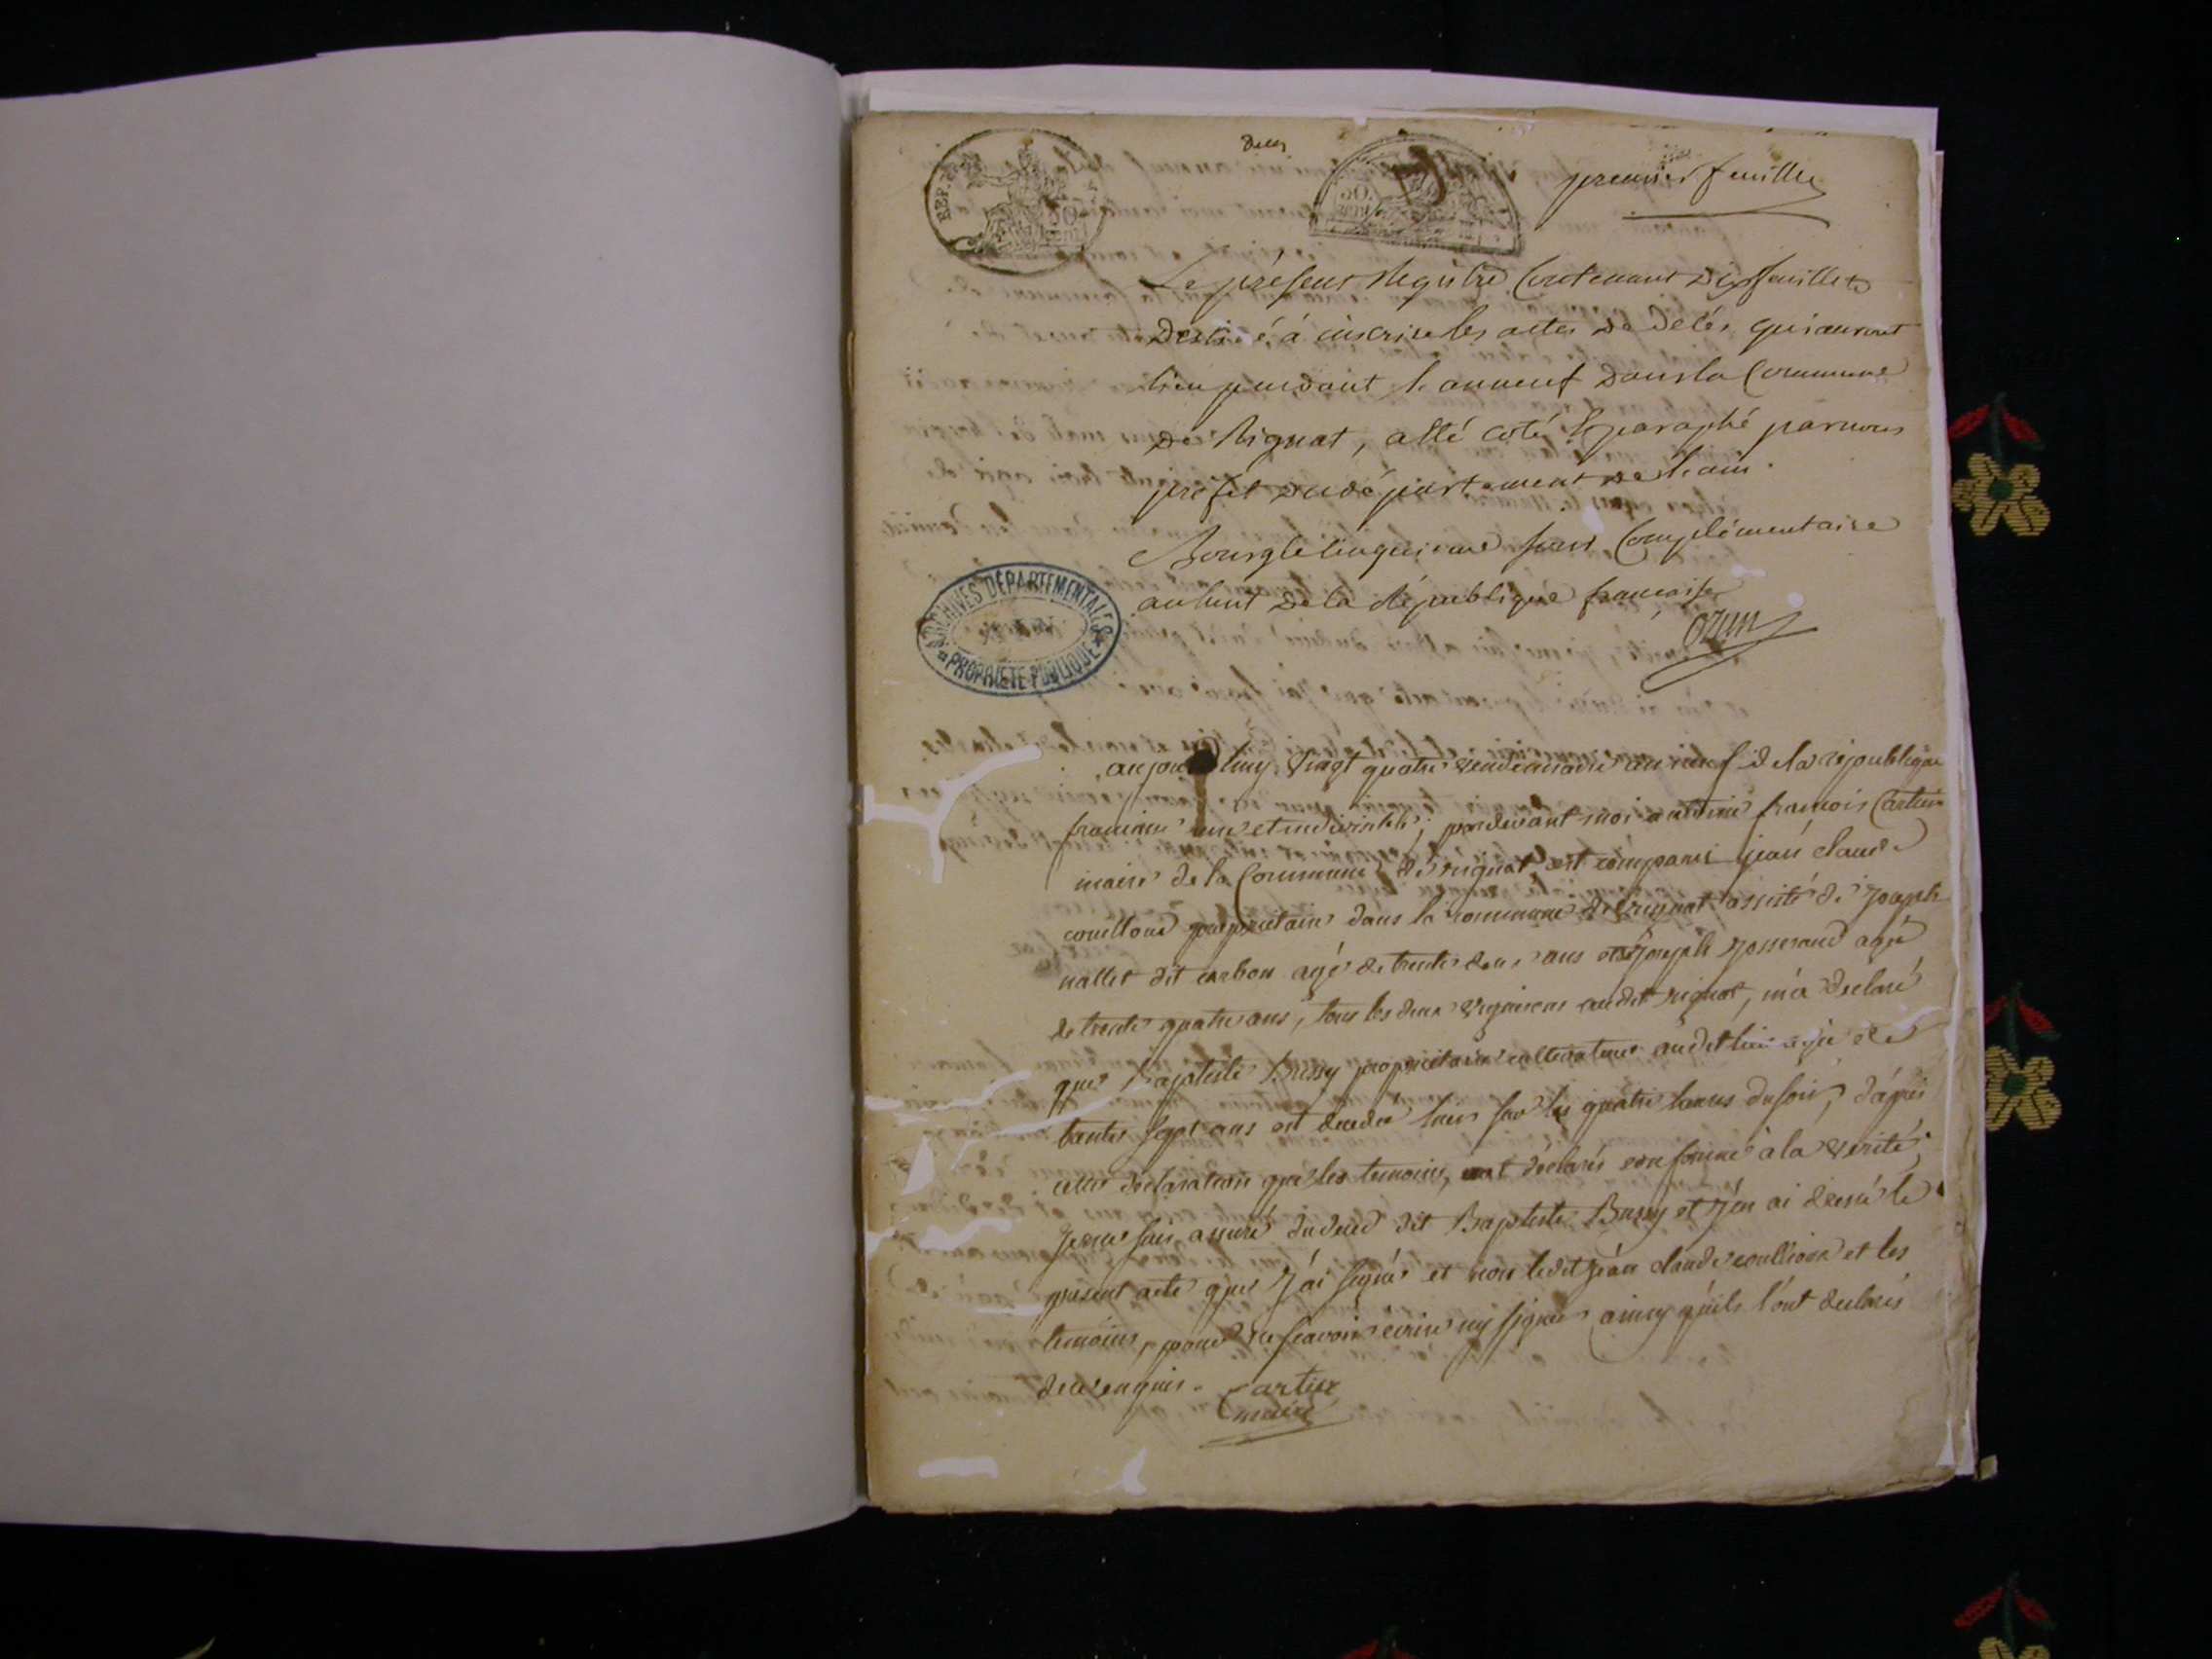 Deces
premier feuillet
REP. 50
50 CENT
Le présent Registre Contenant dix feuillets
Destiné á inscrire les actes de décés, qui auront
lieu pendant l'an neuf dans la Commune
de Rignat, a été coté & paraphé par nous
préfet du département de l'ain.
Bourg le cinquieme jour Complémentaire
an huit de la République française
Ozun
ARCHIVES DÉPARTEMENTALES
PROPRIÉTÉ PUBLIQUE
aujourdhuy vingt quatre vendemiaire an neuf de la republique
francaise une et indivisible; pardevant moi antoine francois Cartier
maire de la Commune de rignat, est comparu jean claude
couilloud propriétaire dans la commune de rignat assisté de joseph
nallet dit carbon agé de trente deux ans et joseph josserand agé
de trente quatre ans, tous les deux vignerons audit rignat, m'a declaré
que Baptiste Bussy propriétaire cultivateur audit lieu agé de
trente sept ans est decedé hier sur les quatre heures du soir, d'après
cette declaration que les temoins, ont déclarés conforme à la verité;
je me suis assuré du deces dit Baptiste Bussy et j'en ai dressé le
present acte que j'ai signé et non ledit jean claude couilloud et les
temoins, pour ne scavoir ecrire ny signer ainsy qu'ils l'ont declarés
de ce enquis. Cartier
maire